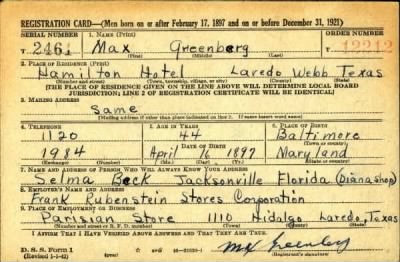 REGISTRATION CARD—(Men born on or after February 17, 1897 and on or before December 31, 1921)
SERIAL NUMBER 1. NAME (Print) ORDER NUMBER
T 2461 Max Greenberg 12212
(First) (Middle) (Last)
2. PLACE OF RESIDENCE (Print)
Hamilton Hotel Laredo Webb Texas
(Number and street) (Town, township, village, or city) (County) (State)
[THE PLACE OF RESIDENCE GIVEN ON THE LINE ABOVE WILL DETERMINE LOCAL BOARD
JURISDICTION; LINE 2 OF REGISTRATION CERTIFICATE WILL BE IDENTICAL]
3. MAILING ADDRESS
Same
[Mailing address if other than place indicated on line 2. If same insert word same]
4. TELEPHONE 5. AGE IN YEARS 6. PLACE OF BIRTH
1120 44 Baltimore
DATE OF BIRTH (Town or county)
1984 April 16 1897 Maryland
(Exchange) (Number) (Mo.) (Day) (Yr.) (State or country)
7. NAME AND ADDRESS OF PERSON WHO WILL ALWAYS KNOW YOUR ADDRESS
Selma Beck Jacksonville Florida (Diana shop)
8. EMPLOYER'S NAME AND ADDRESS
Frank Rubenstein Stores Corporation
9. PLACE OF EMPLOYMENT OR BUSINESS
Parisian Store 1110 Hidalgo Laredo, Texas
(Number and street or R. F. D. number) (Town) (County) (State)
I AFFIRM THAT I HAVE VERIFIED ABOVE ANSWERS AND THAT THEY ARE TRUE.
D. S. S. Form 1
(Revised 1-1-42) (over) Max Greenberg
(Registrant's signature)